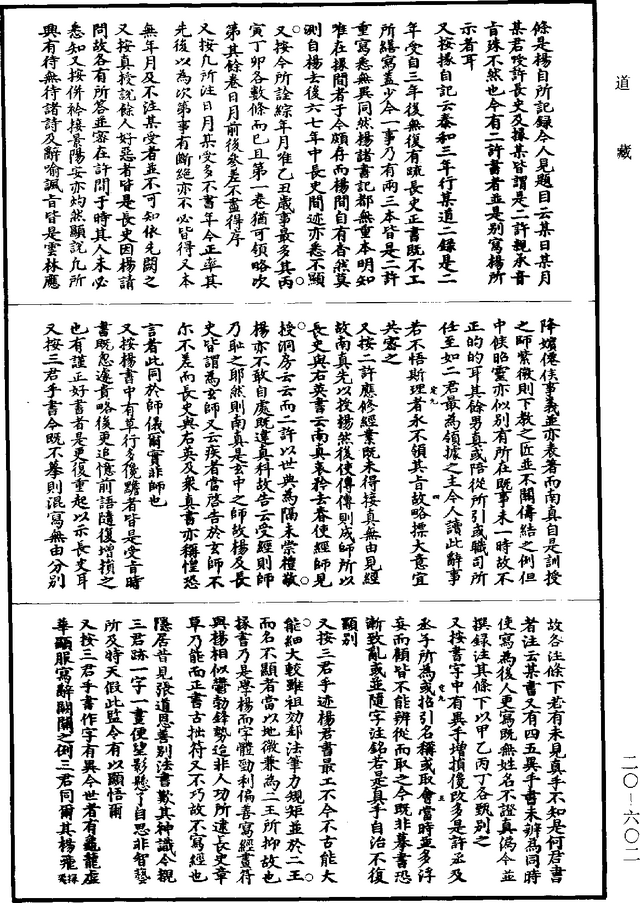 道
藏
條是楊自所記錄今人見題目云某日某月
某君唉許長史及掾某皆謂是二許親承音
旨殊不然也今有二許書者並是別寫楊所
示者耳
又按掾自記云泰和三年行某道二錄是二
年受自三年後無復有疏長史正書既不工
所繕寫蓋少今一事乃有兩三本皆是二許
重寫悉無異同然楊諸書記都無重本明知
唯在掾間者于今頗存而楊間自有杳然莫
測自楊去後六七年中長史間迹亦悉不顯
又按今所詮綜年月唯乙丑歲事最多其丙
寅丁卯各數條而已且第一卷猶可領略次
第其餘卷日月前後參差不盡得序
又按凡所注日月某受多不書年今正率其
先後以為次第事有斷絕亦不必皆得又本
無年月及不注某受者並不可知依先闕之
又按真授說餘人好惡者皆是長史因楊請
問故各有所答並密在許間于時其人未必
悉知又按併衿接景陽安亦灼然顯說凡所
興有待無待諸詩及辭喻諷旨皆是雲林應
降嬪僊侯事義並亦表著而南真自是訓授
之師紫微則下教之匠並不關儔結之例但
中候昭靈亦似別有所在既事未一時故不
正的的耳其餘男真或陪從所引或職司所
任至如二君最為領據之主今人讀此辭事
若不悟斯理者永不領其旨故略標大意宜
共密之
又按二許應修經業既未得接真無由見經
故南真先以授楊然後使傳傳則成師所以
長史與右英書云南真哀矜去春使經師見
授洞房云云而二許以世典為隔未崇禮敬
楊亦不敢自處既違真科故告云受經則師
乃恥之耶然則南真是玄中之師故楊及長
史皆謂為玄師又云疾者當啓告於玄師不
尔不差而長史與右英及衆真書亦稱惶恐
言者此同於師儀爾實非師也
又按楊書中有草行多儳黵者皆是受旨時
書既忽遽貴略後更追憶前語隨復增損之
也有謹正好書者是更復重起以示長史耳
又按三君手書今既不摹則混寫無由分別
故各注條下若有未見真手不知是何君書
者注云某書又有四五異手書未辨為同時
使寫為後人更寫既無姓名不證真偽今並
撰錄注其條下以甲乙丙丁各甄別之
又按書字中有異手增損儳改多是許丞及
丞子所為或招引名稱或取會當時並多浮
妄而顧皆不能辨從而取之今既非摹書恐
漸致亂或並隨字注銘若是真手自治不復
顯別
又按三君手迹楊君書最工不今不古能大
能細大較雖祖効郗法筆力規矩並於二王
而名不顯者當以地微兼為二王所抑故也
掾書乃是學楊而字體勁利偏善寫經畫符
與楊相似鬱勃鋒勢迨非人功所逮長史章
草乃能而正書古拙符又不巧故不寫經也
隱居昔見張道恩善別法書歎其神識今覩
三君跡一字一畫便望影懸了自思非智藝
所及特天假此監令有以顯悟爾
又按三君手書作字有異今世者有龜龍虛
華顯服寫辭闕關之例三君同爾其楊飛
二〇—六〇二